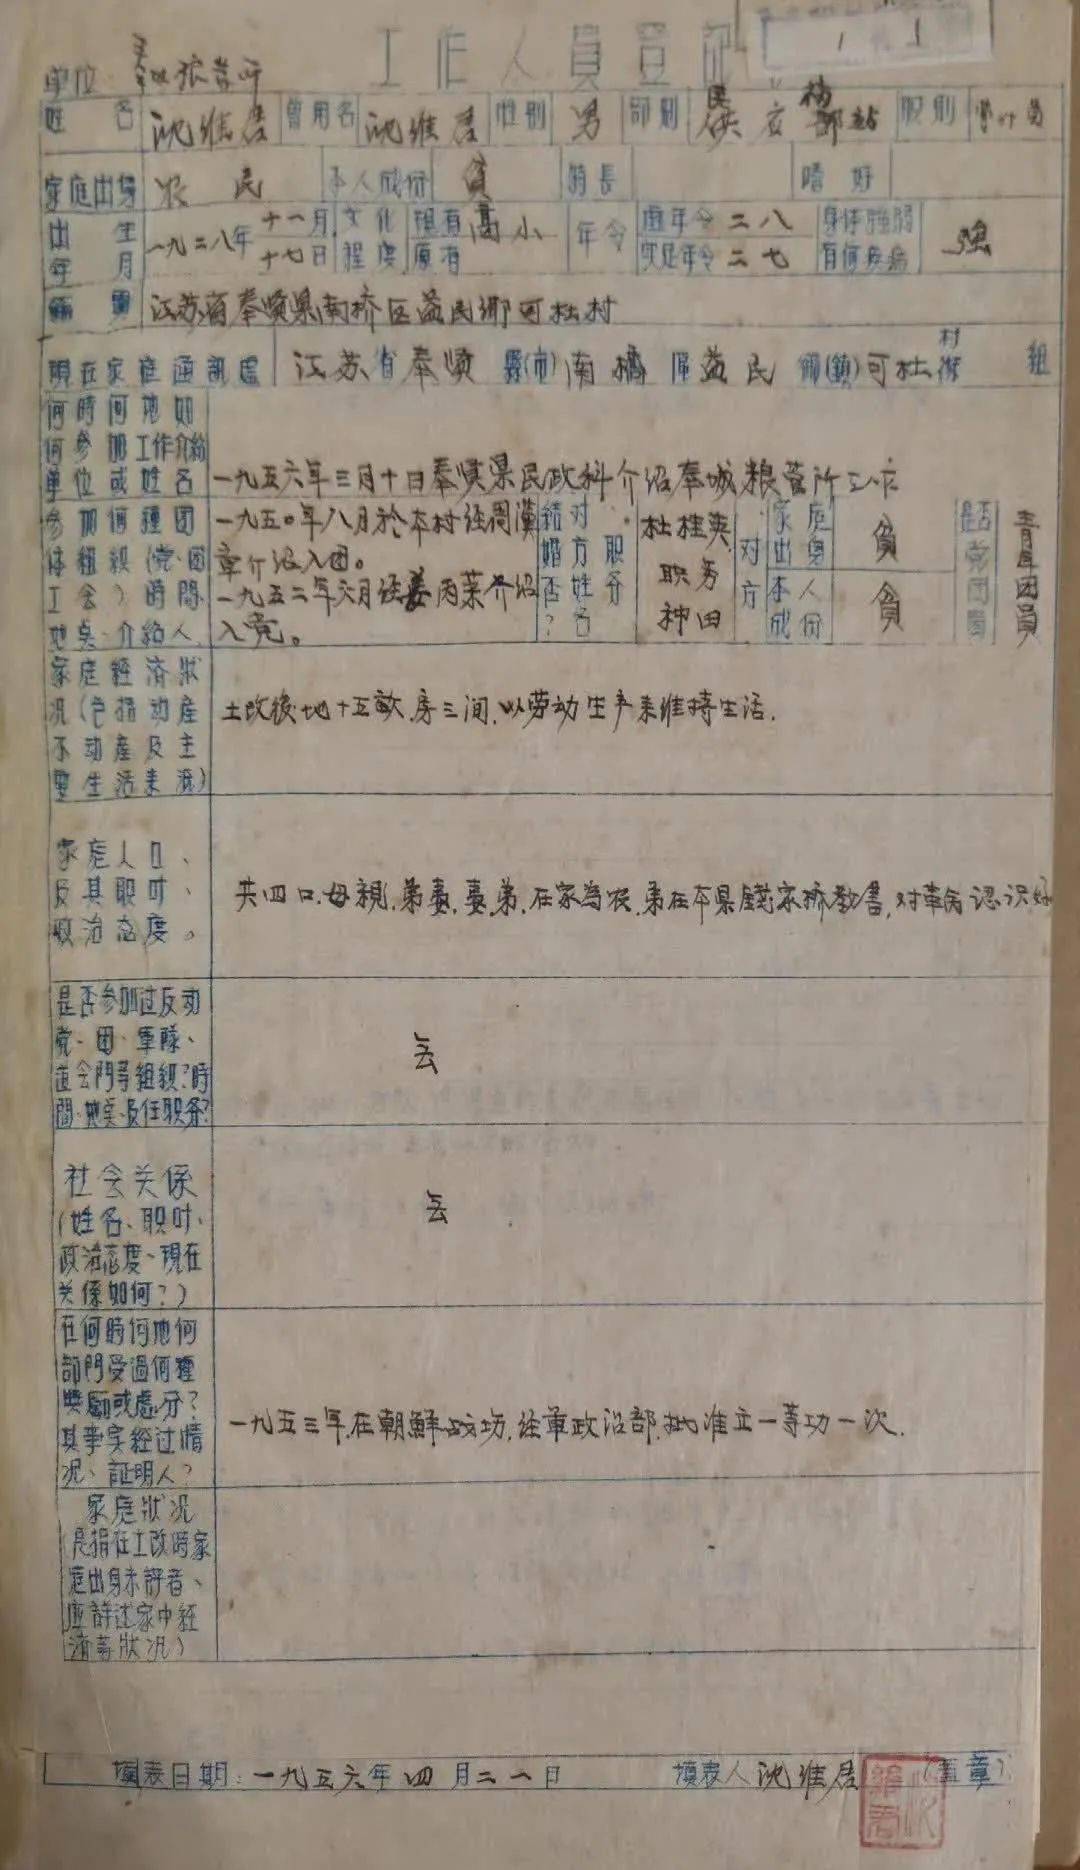 工作人員登記
1 1
單位 奉城粮营所
姓名 沈維居 曾用名 沈維居 性别 男 部别 股别
家庭出身 农民 本人成份 貧 特長 嗜好
出生年月 一九二八年十一月十七日 文化程度 現有 原有 高小 年令 虛年令 二八 实足年令 二七 身体強弱有何疾病 強
籍貫 江苏省奉賢县南桥区益民鄉可杜村
現在家庭通訊處 江苏省奉賢縣(市)南橋區益民鄉(鎮)可杜村 組
何時何地如
何参加工作介紹
單位或姓名 一九五六年三月十日奉賢县民政科介绍奉城粮营所工作
参加何種團
体組織(党·团
工会)時間
地点·介紹人
一九五〇年八月於本村经周漢
章介绍入团。
一九五二年六月经姜丙菜介绍
入党。
結婚否? 对方姓名 职务 杜桂英 职务 种田
对方 家庭出身 貧 本人成份 貧
是否党团員 青年团員
家庭經济狀
况(包括动産
不动産及主
要生活来源)
土改後地十五畝.房三间.以劳动生产来维持生活.
家庭人口、
及其职叶、
政治态度。
共四口.母親.弟妻.妻.弟.在家为农.弟在本县錢家桥教書.对革命認识好
是否参加过反动
党、团、軍隊、
道会門等組織?時
間·地点·及任职务?
无
社会关係
(姓名、职叶、
政治态度、現在
关係如何?)
无
在何時何地何
部門受過何種
獎勵或處分?
其事实經过情
况、証明人?
一九五三年.在朝鮮战场.经軍政治部.批准立一等功一次.
家庭狀况
(是指在土改時家
庭出身未評者、
應詳述家中経
濟等狀况)
填表日期:一九五六年四月二一日 填表人 沈維居 (蓋章)